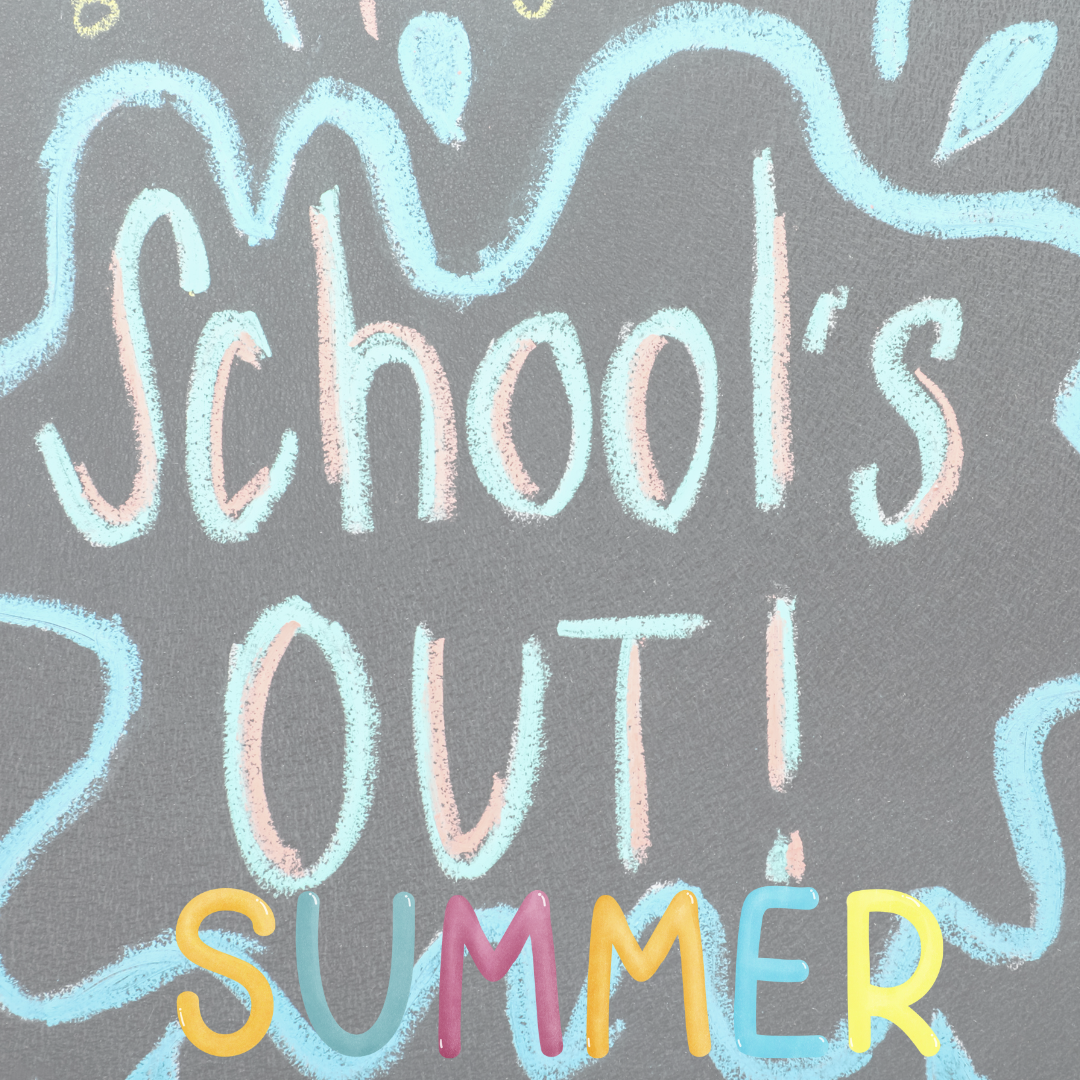 School's
OUT!
SUMMER